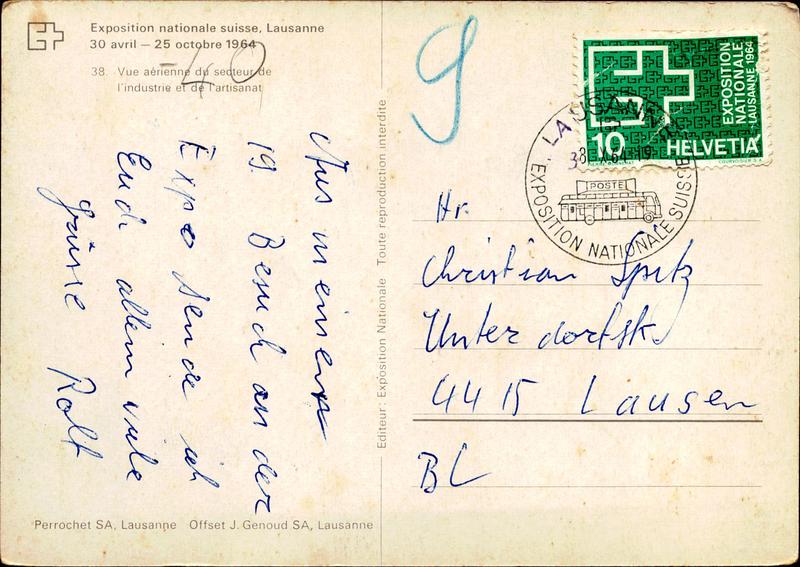 Exposition nationale suisse, Lausanne
30 avril — 25 octobre 1964
38. Vue aérienne du secteur de
l'industrie et de l'artisanat
-40
Aus meinem
19. Besuch an der
Expo sende ich
Euch allem viele
Grüsse Rolf
Perrochet SA, Lausanne Offset J. Genoud SA, Lausanne
Editeur: Exposition Nationale Toute reproduction interdite
9
EXPOSITION
NATIONALE
LAUSANNE 1964
10 HELVETIA
COURVOISIER S.A.
LAUSANNE
8.X.64-19
POSTE
"EXPOSITION NATIONALE SUISSE"
Hr.
Christian Spitz
Unterdorfstr.
4415 Lausen
BL